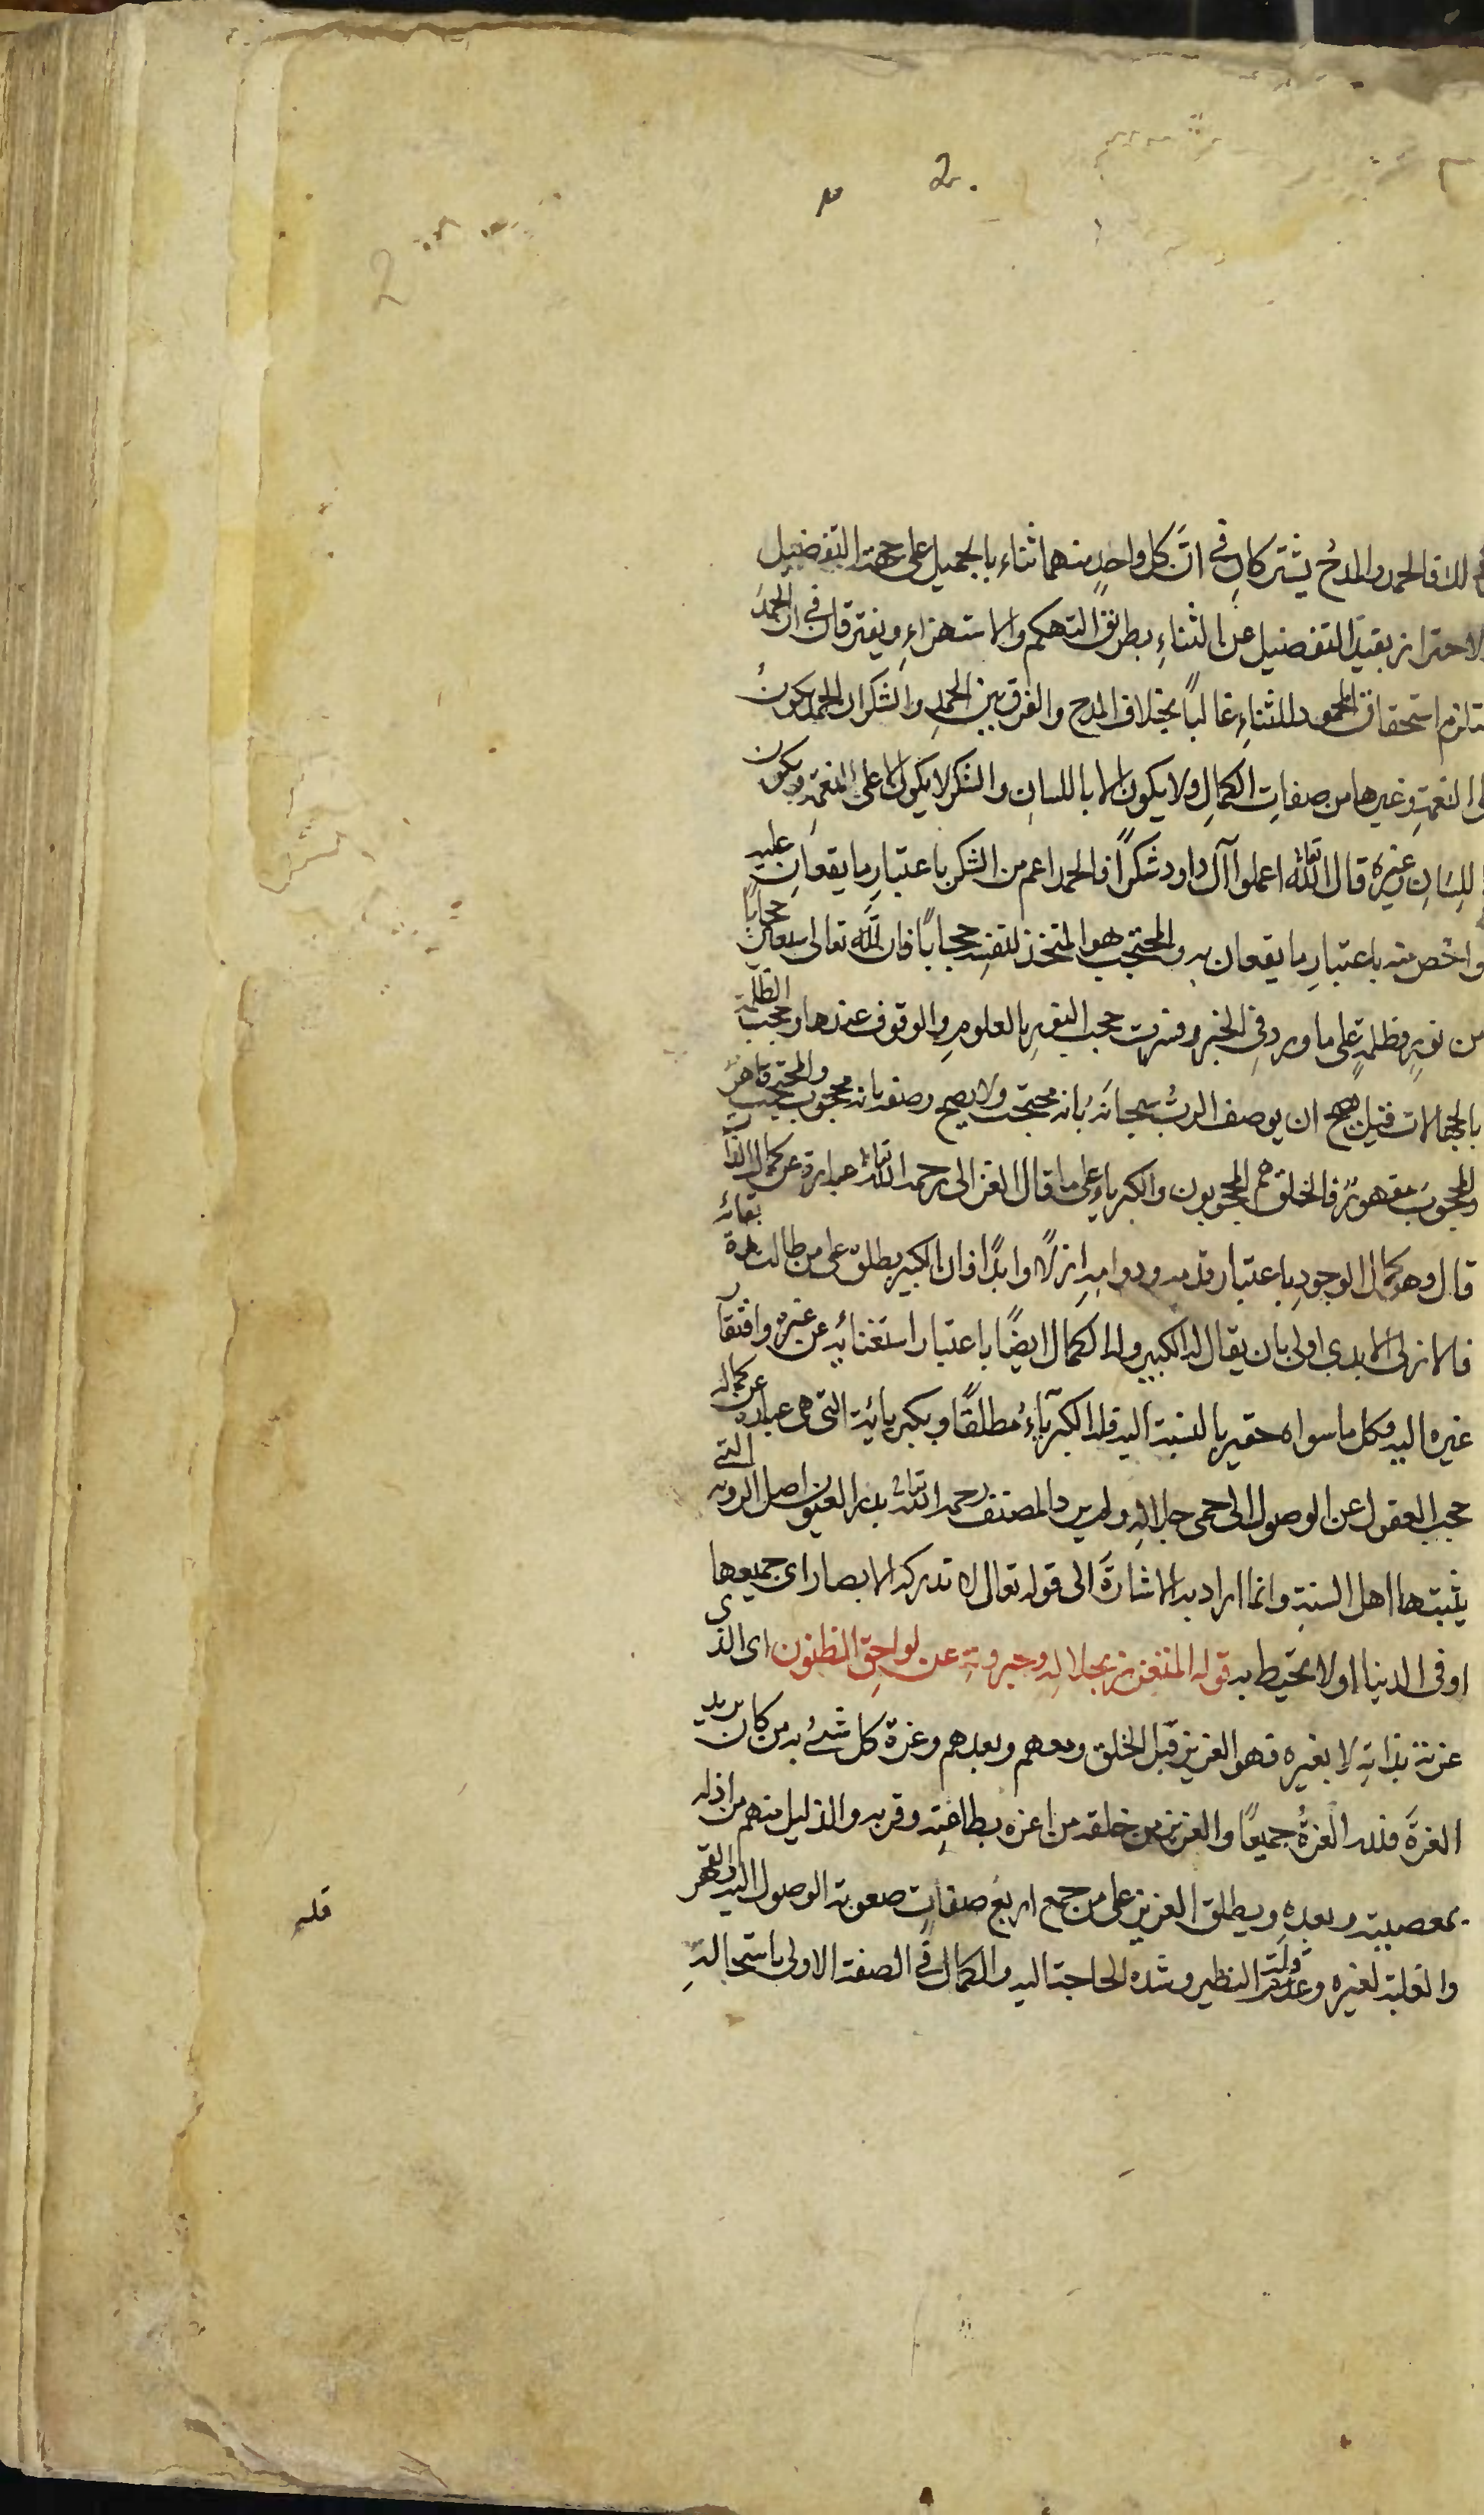 2.
2
لك فالحمد والمدحُ يشتركانِ في انَّ كل واحدٍ منهما ثناء بالجميل على جهة التفضيل
الاحتراز بقيد التفضيل عن الثناءِ بطريق التهكم والاستهزاءِ ويفترقان في ان الحمدَ
استحقاق المحمود للثناءِ غالبًا بخلاف المدح والفرق بين الحمدِ والشكر ان الحمد يكونُ
النعمةِ وغيرها من صفاتِ الكمالِ ولا يكون الا باللسانِ والشكر لا يكون الا على النعمةِ ويكون
للِسَانِ وغيره قال الله تعالى اعملوا آل داود شكرًا فالحمد اعم من الشكر باعتبارِ ما يقعانِ عليه
واخص منه باعتبارِ ما يقعان به والمحتجب هو المتخذ لنفسِه حجابًا فان للّه تعالى حجابًا
من نورٍ وظلمةٍ على ما ورد في الخبر وفسرت حجب النورِ بالعلومِ والوقوف عندها وحجب الظلمة
بالجهالات قيل يصح ان يوصف الربُّ سبحانَهُ بانه محتجب ولا يصح وصفه بانه محجوب والمحتجب قاهرٌ
والمحجوبَ مقهورٌ فالخلق هم المحجوبون والكبرياء على ما قال الغزالي رحمه الله تعالى عبارة عن كمال الذات
قال وهو كمال الوجودِ باعتبار قدمه ودوامِهِ ازلًا وابدًا فان الكبير يطلق على من طالت مدة بقائه
فالازلي الابدي اولى بان يقال له الكبير وله الكمال ايضًا باعتبار استغنائِه عن غيره وافتقار
غيره اليه وكل ما سواه حقير بالنسبة اليه فله الكبرآءُ مطلقًا وبكبريائيته التي هي عبارة عن كماله
حجب العقول عن الوصول الى حمى جلالهِ ولم يرد المصنف رحمه الله تعالى بذلك العيون اصل الرويه التي
يثبتها اهل السنةِ وانما اراد به الاشارةَ الى قوله تعالى لا تدركه الابصار اى جميعها
او في الدنيا اولا تحيط به قوله المتعزز بجلالِهِ وجبروتِهِ عن لواحِقِ الظنون اى الذى
عزته بذاتِهِ لا بغيره فهو العزيز قبل الخلق ومعهم وبعدهم وعزة كل شئ به من كان يريد
العزةَ فلله العزةُ جميعًا والعزيز من خلقه من اعزه بطاعتِه وقربه والذليل منهم من اذله
بمعصيته وبعدِهِ ويطلق العزيز على من جمع اربع صفاتٍ صعوبة الوصول اليه والقهر
والغلبة لغيره وقلة النظير وشده الحاجة اليه والكمال في الصفة الاولى باستحالةِ